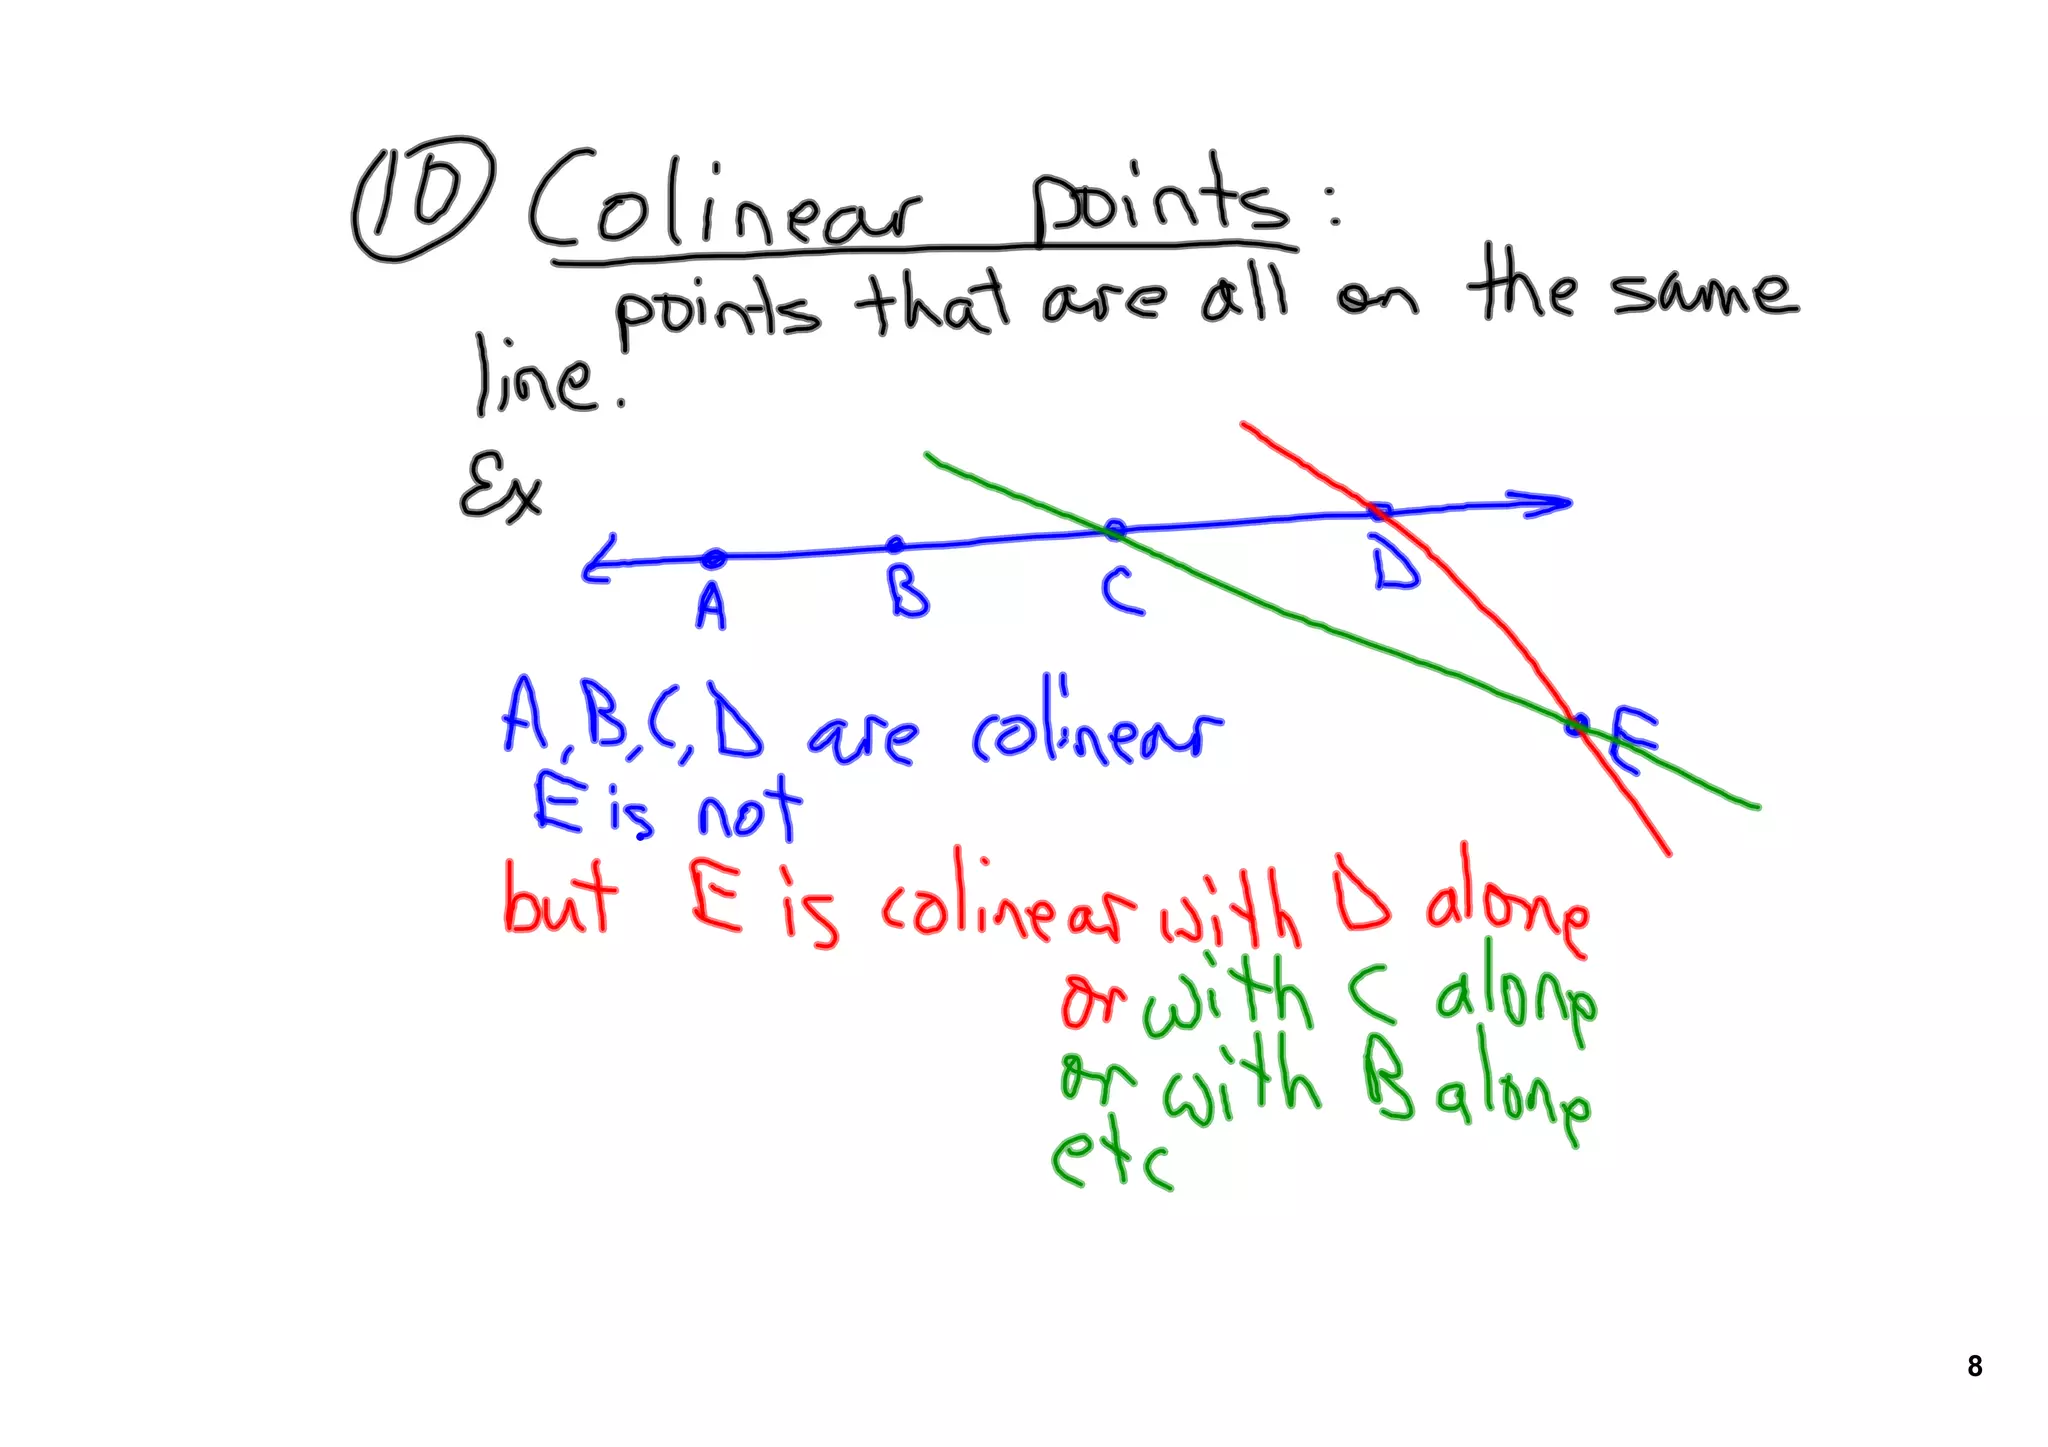 10 Colinear points:
points that are all on the same
line.
Ex
A B C D
E
A, B, C, D are colinear
E is not
but E is colinear with D alone
or with C alone
or with B alone
etc
8